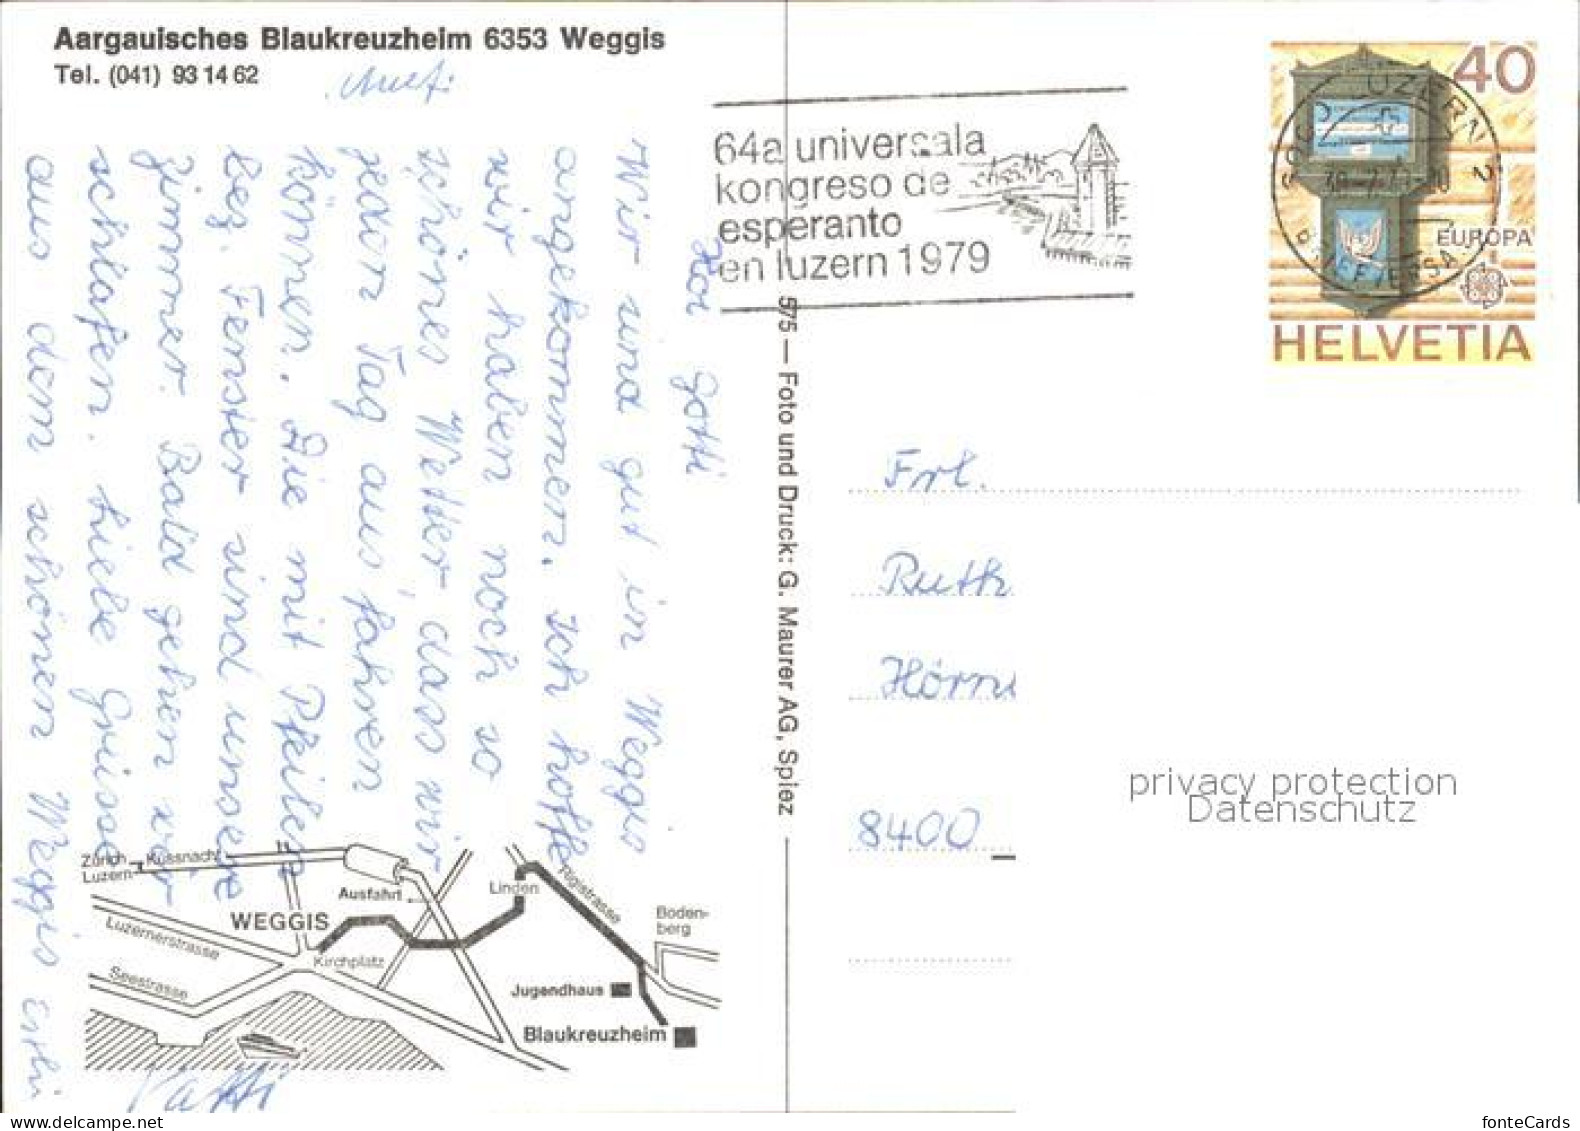 Aargauisches Blaukreuzheim 6353 Weggis
Tel. (041) 93 14 62
64a universala
kongreso de
esperanto
en luzern 1979
40
EUROPA
HELVETIA
Gotti
Wir sind gut in Weggis
angekommen. Ich hoffe
wir haben noch so
schönes Wetter, dass wir
jeden Tag aus fahren
können. Die mit Pfeilen
bez. Fenster sind unsere
Zimmer. Bald gehen wir
schlafen. Liebe Grüsse
aus dem schönen Weggis
Vatti
575 — Foto und Druck: G. Maurer AG, Spiez
Frl.
Ruth
8400
privacy protection
Datenschutz
Zürich
Küssnacht
Luzern
Ausfahrt
Linden
Rigistrasse
WEGGIS
Boden-
berg
Luzernerstrasse
Kirchplatz
Seestrasse
Jugendhaus
Blaukreuzheim
www.delcampe.net
fonteCards